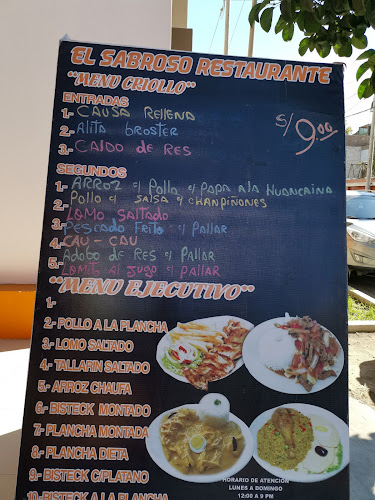 EL SABROSO RESTAURANTE
"MENU CRIOLLO"
ENTRADAS
1.- CAUSA RELLENA
2.- Alita broster
3.- CALDO DE RES
S/ 9.00
SEGUNDOS
1.- ARROZ c/ Pollo c/ PAPA A LA HUANCAINA
2.- Pollo c/ SALSA c/ CHAMPIÑONES
LOMO SALTADO
3.- PESCADO FRITO c/ PALLAR
4.- CAU - CAU
Adobo DE RES c/ PALLAR
5.- LOMITO AL JUGO c/ PALLAR
"MENU EJECUTIVO"
1.-
2.- POLLO A LA PLANCHA
3.- LOMO SALTADO
4.- TALLARIN SALTADO
5.- ARROZ CHAUFA
6.- BISTECK MONTADO
7.- PLANCHA MONTADA
8.- PLANCHA DIETA
9.- BISTECK C/PLATANO
10.- BISTECK A LA PLANCHA
HORARIO DE ATENCION
LUNES A DOMINGO
12:00 A 9 PM